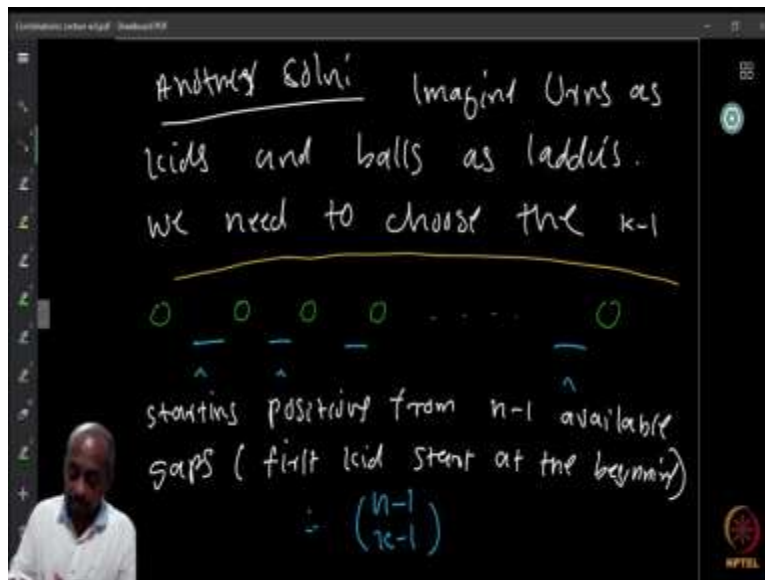 Another Soln: Imagine Urns as
kids and balls as laddus.
we need to choose the k-1
starting positions from n-1 available
gaps ( first kid start at the beginning)
∴ (n-1
k-1)
NPTEL